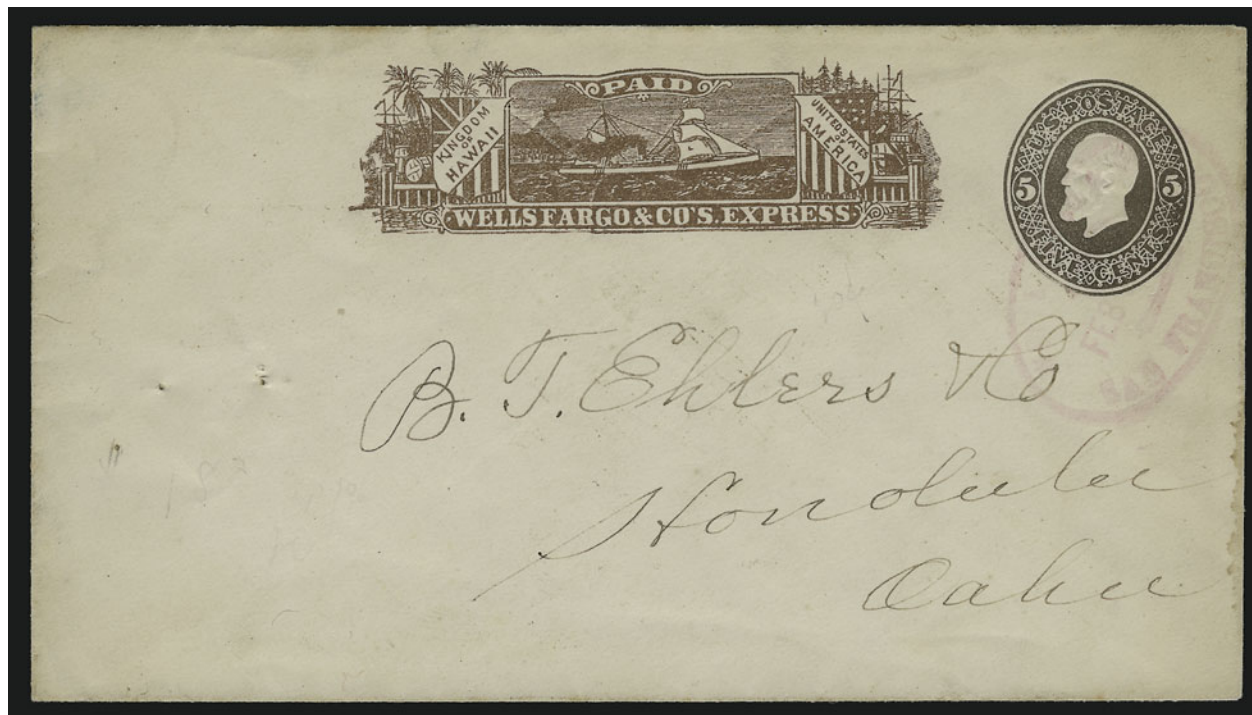 PAID
KINGDOM
OF
HAWAII
UNITED STATES
OF
AMERICA
WELLS FARGO & CO'S. EXPRESS
U.S. POSTAGE
5 5
FIVE CENTS
FEB
SAN FRANCISCO
B. F. Ehlers & Co
Honolulu
Oahu